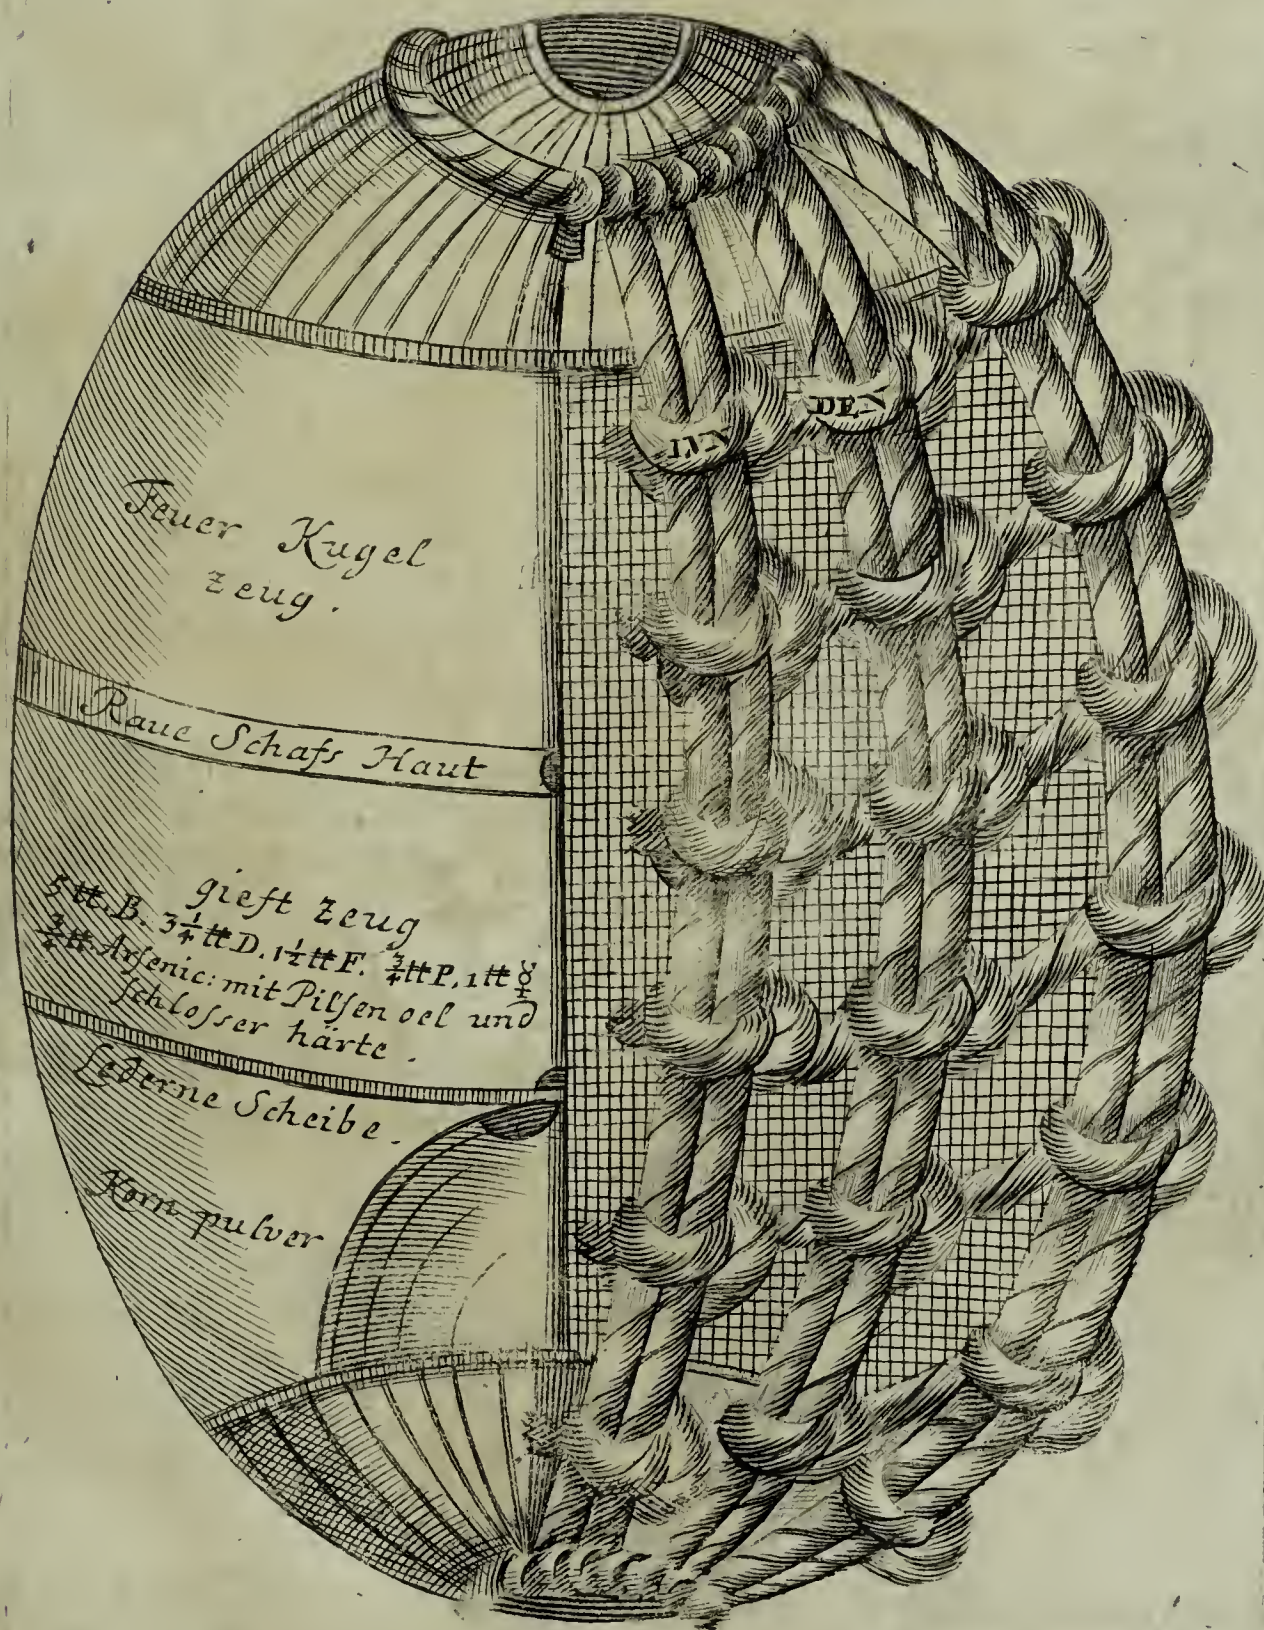 LVN DEN
Feuer Kugel
zeug.
Raue Schafs Haut
gieft zeug
5 ℔. B. 3¼ ℔ D. 1½ ℔ F. ¾ ℔ P. 1 ℔ ☿
¾ ℔ Arſenic: mit Pilſen oel und
ſchloſſer härte.
Lederne Scheibe.
Korn pulver